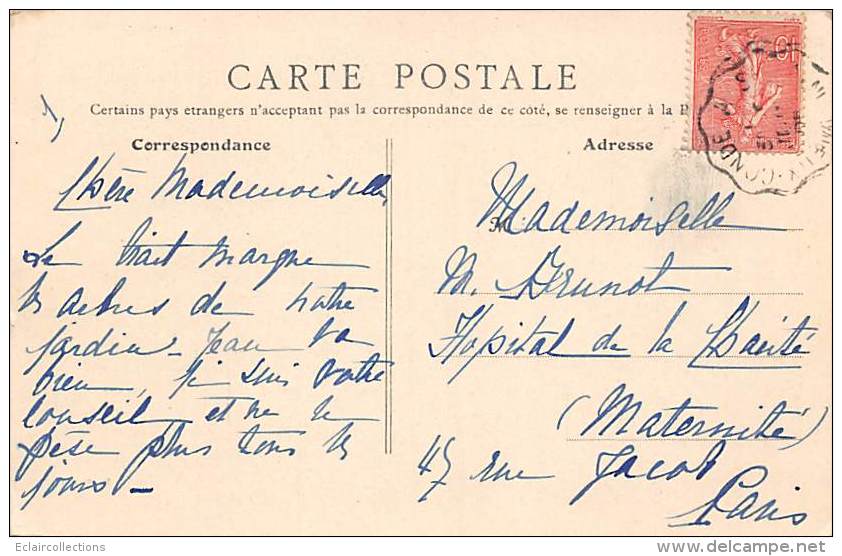 CARTE POSTALE
Certains pays etrangers n'acceptant pas la correspondance de ce côté, se renseigner à la P
Correspondance
Adresse
Chère Mademoiselle,
Le trait marque
les arbres de notre
jardin – Jean va
bien, je suis votre
conseil et ne le
pèse plus tous les
jours –
Mademoiselle
M. Brunot
Hopital de la Charité
(Maternité)
47 rue Jacob
Paris
10
CONDE A
Eclaircollections
www.delcampe.net